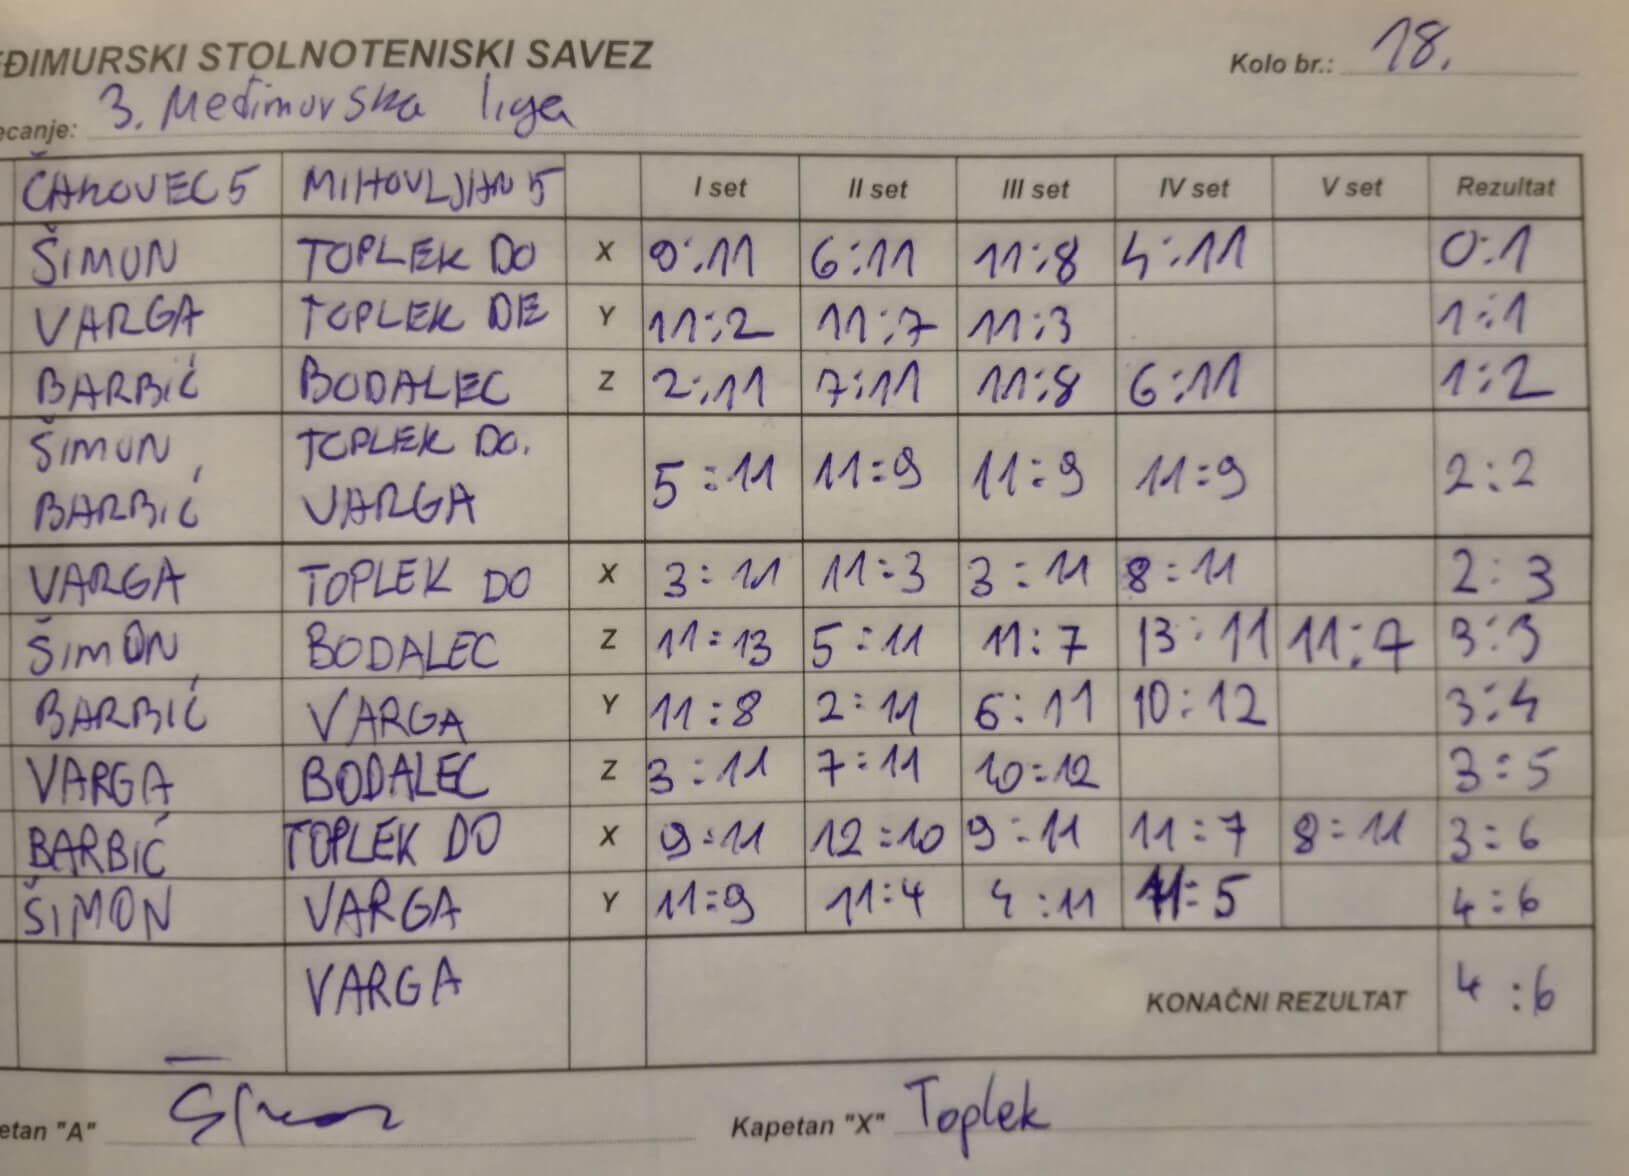 EĐIMURSKI STOLNOTENISKI SAVEZ
Kolo br.: 18.
ecanje: 3. Međimurska liga
ČAKOVEC 5 MIHOVLJAN 5 I set II set III set IV set V set Rezultat
ŠIMUN TOPLEK DO X 9:11 6:11 11:8 4:11 0:1
VARGA TOPLEK DE Y 11:2 11:7 11:3 1:1
BARBIĆ BODALEC Z 2:11 7:11 11:8 6:11 1:2
ŠIMUN, TOPLEK DO.
BARBIĆ VARGA 5:11 11:9 11:9 11:9 2:2
VARGA TOPLEK DO X 3:11 11:3 3:11 8:11 2:3
ŠIMUN BODALEC Z 11:13 5:11 11:7 13:11 11:7 3:3
BARBIĆ VARGA Y 11:8 2:11 6:11 10:12 3:4
VARGA BODALEC Z 3:11 7:11 10:12 3:5
BARBIĆ TOPLEK DO X 9:11 12:10 9:11 11:7 8:11 3:6
ŠIMON VARGA Y 11:9 11:4 4:11 11:5 4:6
VARGA KONAČNI REZULTAT 4:6
etan "A" Kapetan "X" Toplek